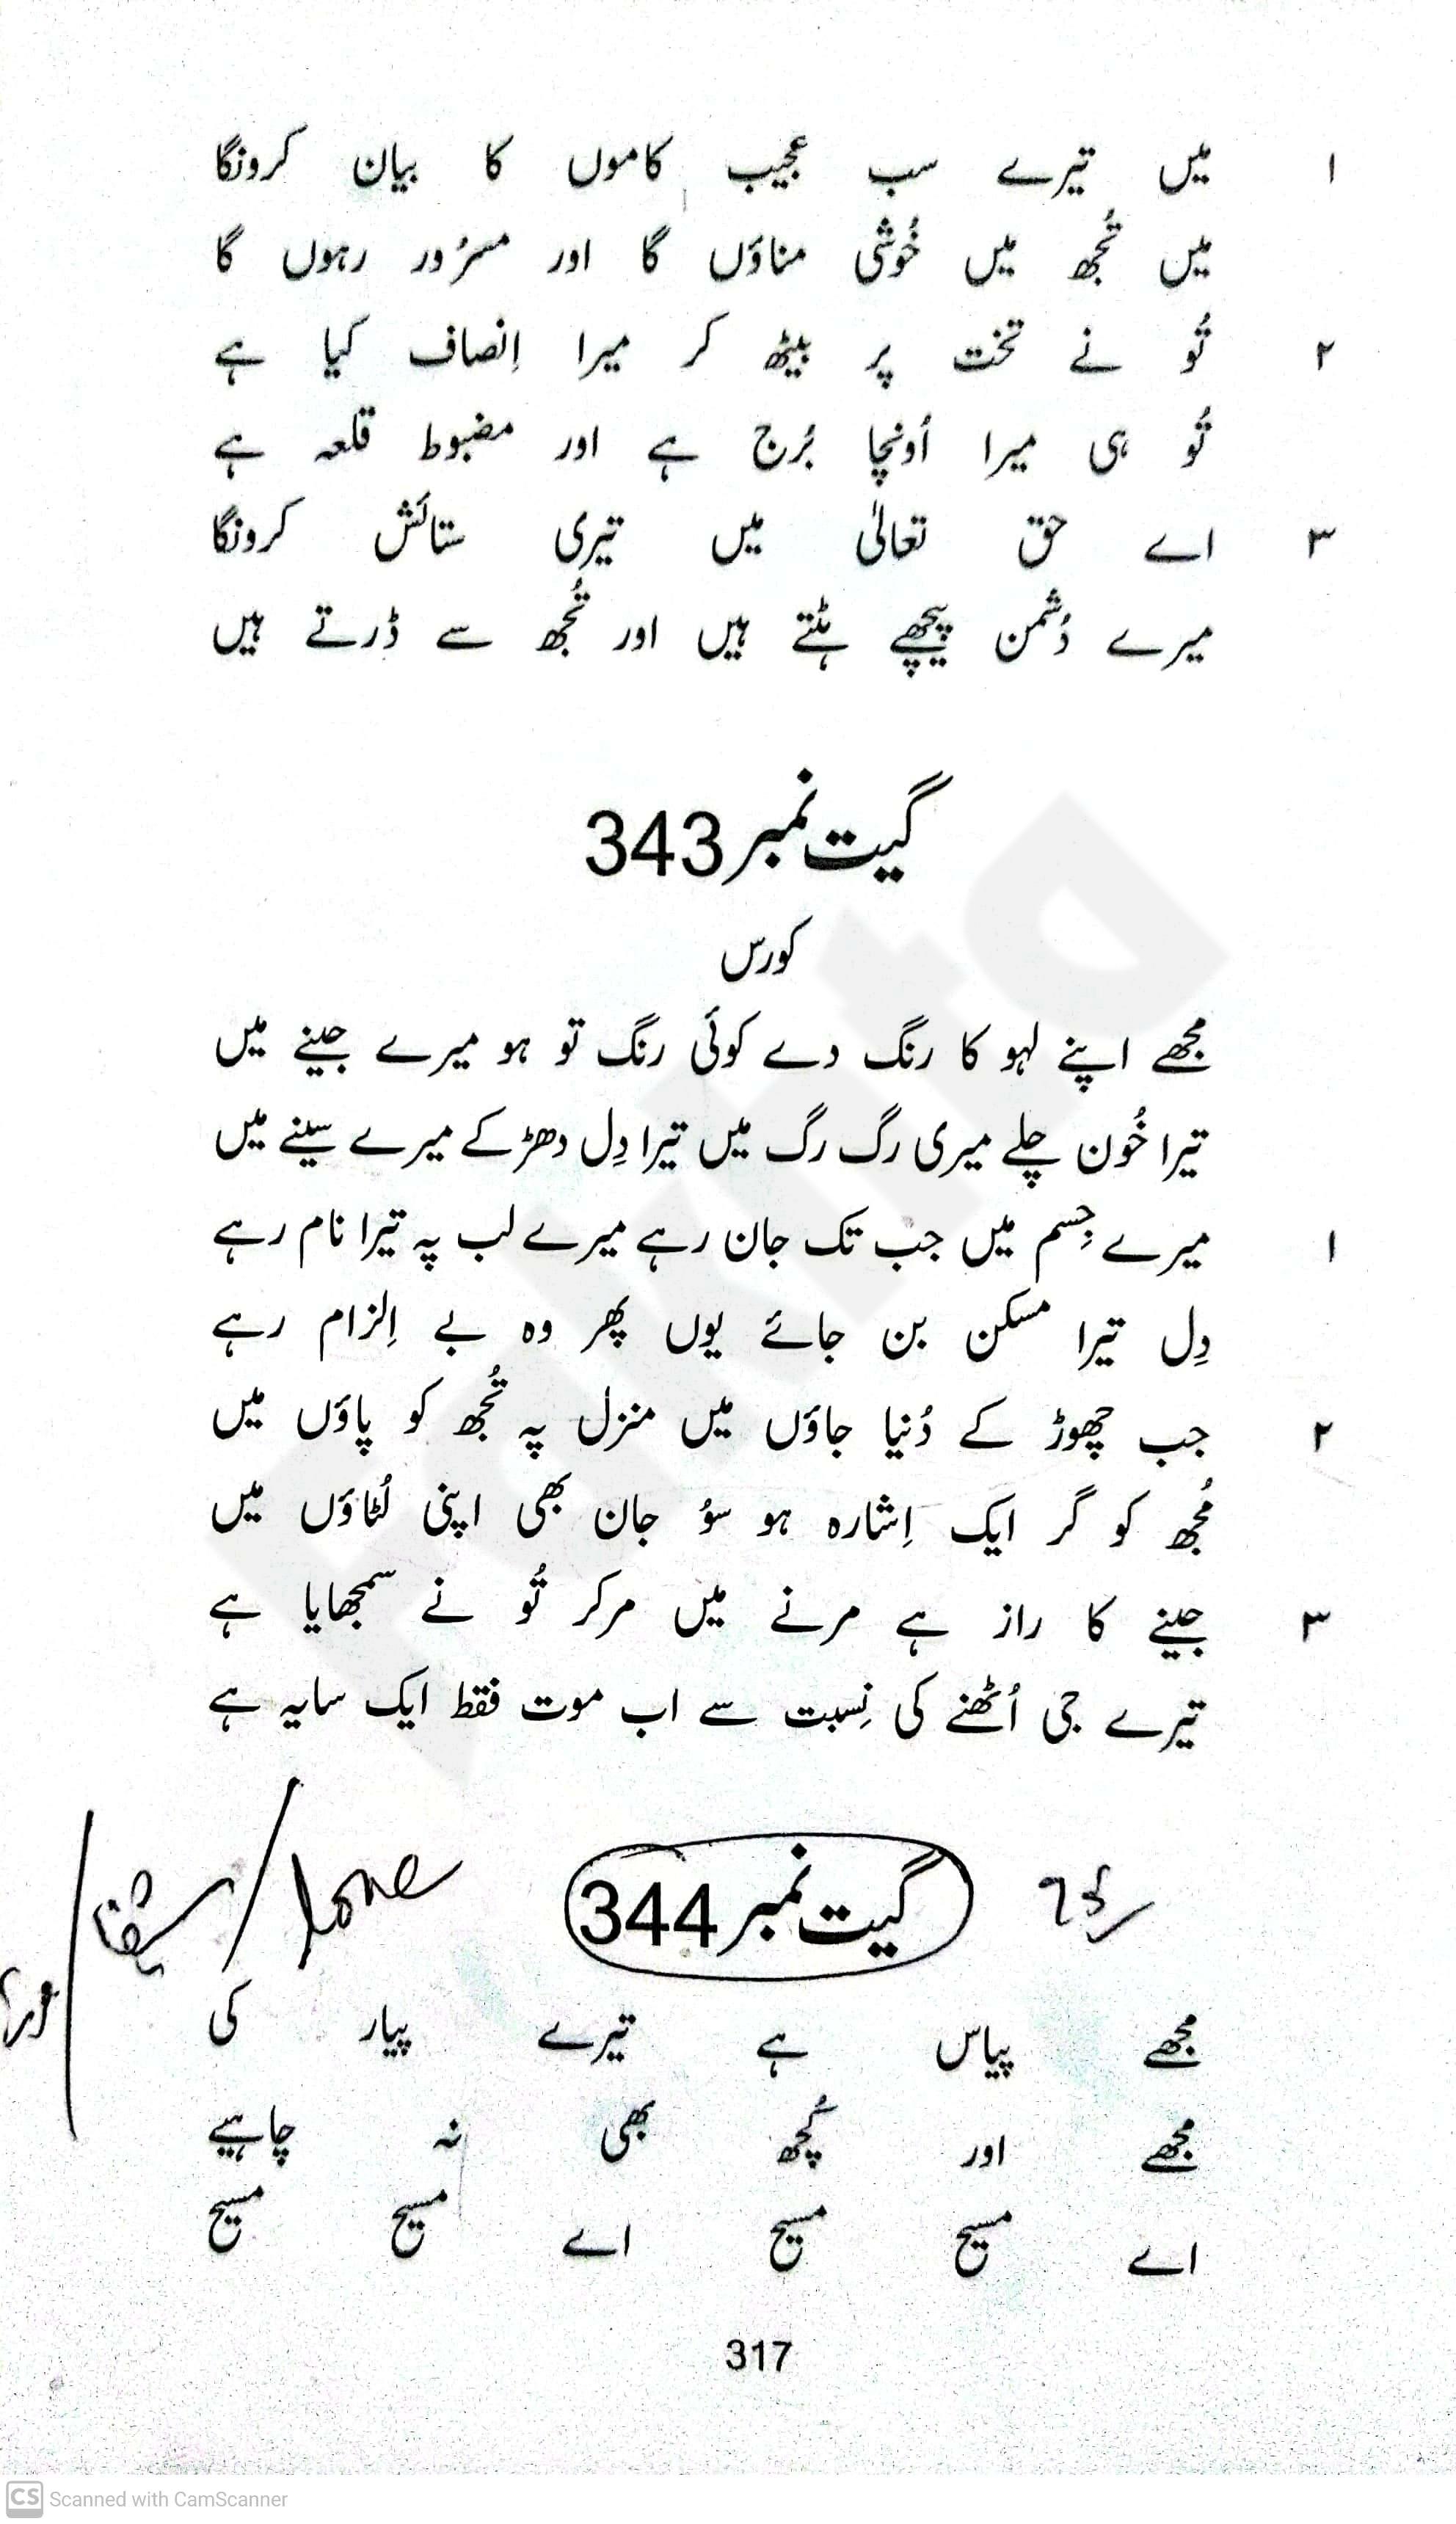 ۱ میں تیرے سب عجیب کاموں کا بیان کرونگا
میں تُجھ میں خُوشی مناؤں گا اور مسرُور رہوں گا
۲ تُو نے تخت پر بیٹھ کر میرا اِنصاف کیا ہے
تُو ہی میرا اُونچا بُرج ہے اور مضبوط قلعہ ہے
۳ اے حق تعالیٰ میں تیری ستائش کرونگا
میرے دُشمن پیچھے ہٹتے ہیں اور تُجھ سے ڈرتے ہیں
گیت نمبر 343
کورس
مجھے اپنے لہو کا رنگ دے کوئی رنگ تو ہو میرے جینے میں
تیرا خُون چلے میری رگ رگ میں تیرا دِل دھڑکے میرے سینے میں
۱ میرے جِسم میں جب تک جان رہے میرے لب پہ تیرا نام رہے
دِل تیرا مسکن بن جائے یوں پھر وہ بے اِلزام رہے
۲ جب چھوڑ کے دُنیا جاؤں میں منزل پہ تُجھ کو پاؤں میں
مُجھ کو گر ایک اِشارہ ہو سوُ جان بھی اپنی لُٹاؤں میں
۳ جینے کا راز ہے مرنے میں مرکر تُو نے سمجھایا ہے
تیرے جی اُٹھنے کی نِسبت سے اب موت فقط ایک سایہ ہے
گیت نمبر 344
مجھے پیاس ہے تیرے پیار کی
مجھے اور کُچھ بھی نہ چاہیے
اے مسیح مسیح اے مسیح مسیح
317
Fakhta
CS Scanned with CamScanner